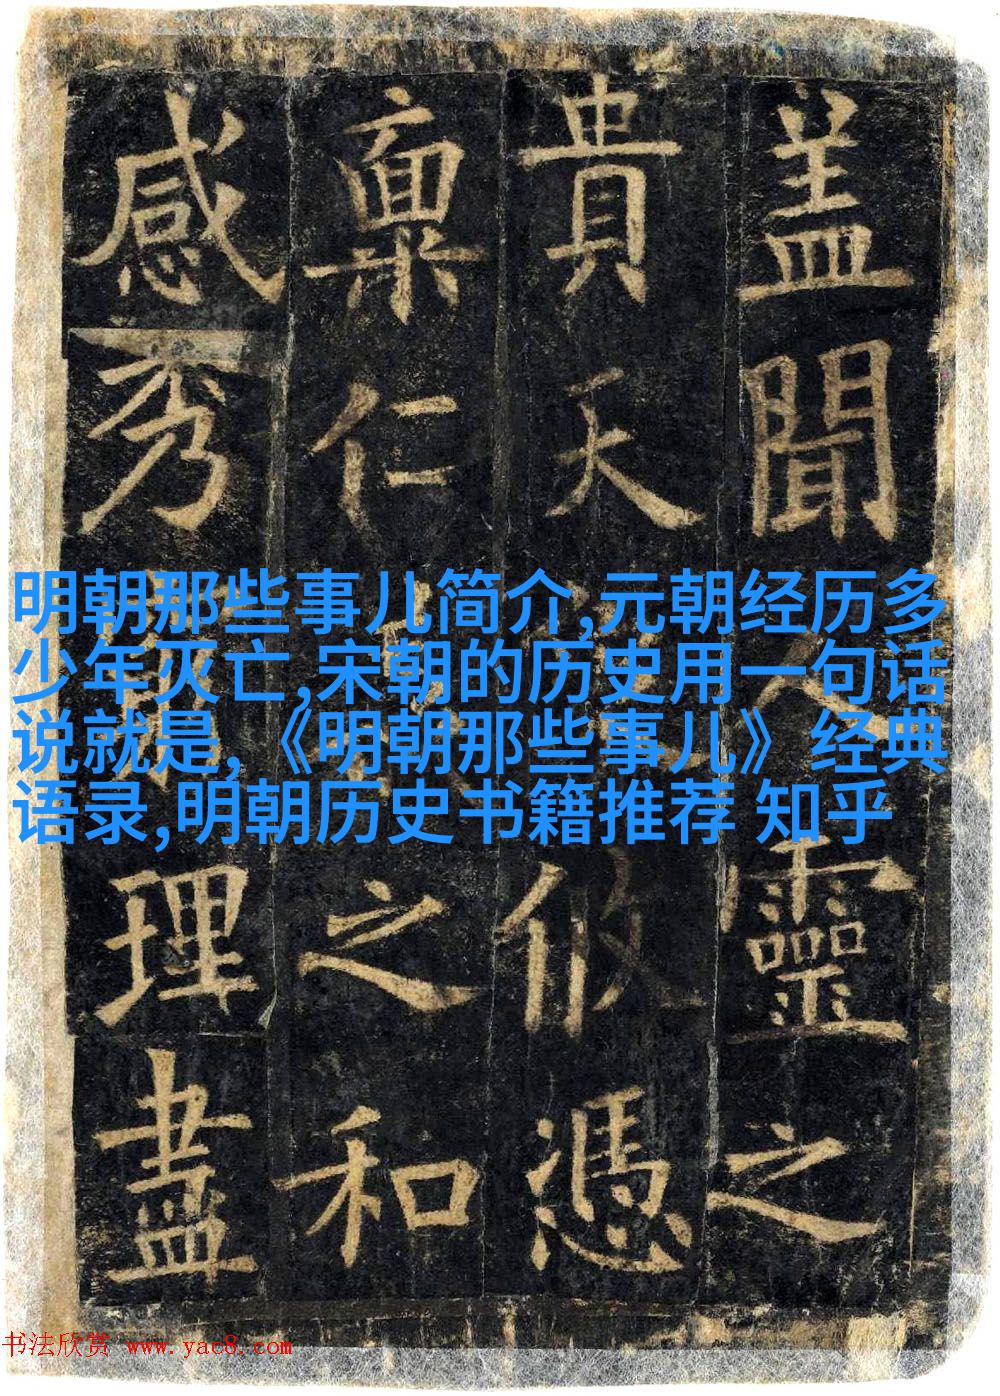 盖聞人靈之
貴天攸憑
稟仁之和
感秀理盡
明朝那些事儿简介,元朝经历多
少年灭亡,宋朝的历史用一句话
说就是,《明朝那些事儿》经典
语录,明朝历史书籍推荐 知乎
书法欣赏 www.yac8.com